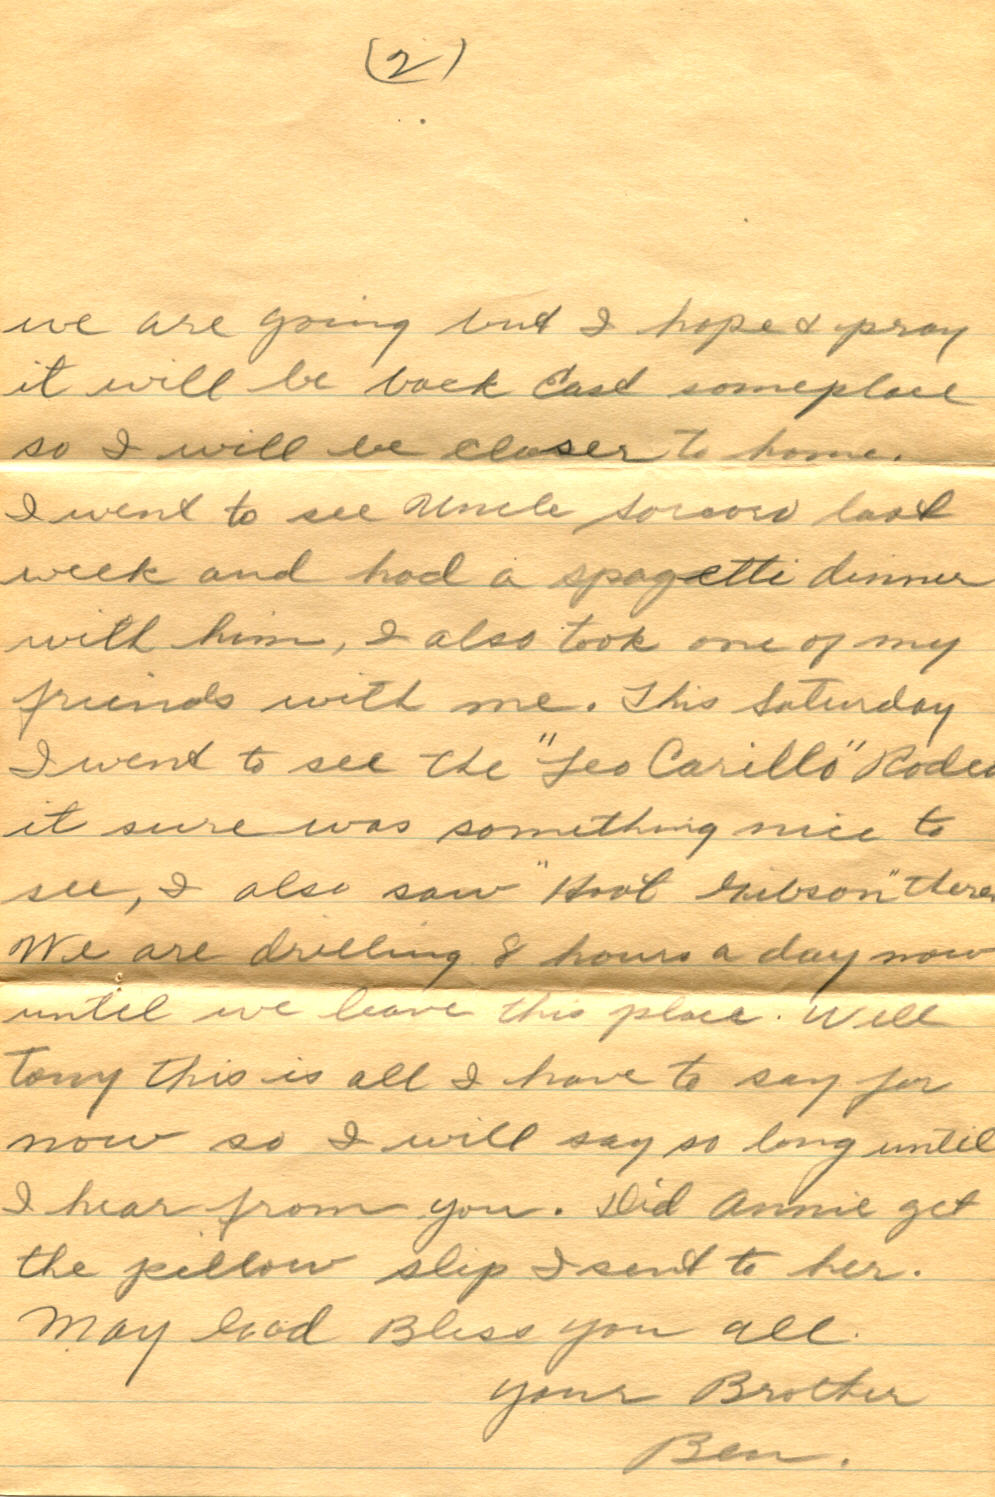 (2)
we are going but I hope & pray
it will be back East someplace
so I will be closer to home.
I went to see Uncle last
week and had a spagetti dinner
with him, I also took one of my
friends with me. This Saturday
I went to see the "Leo Carillo" Rodeo
it sure was something nice to
see, I also saw "Hoot Gibson" there
We are drilling 8 hours a day now
until we leave this place. Well
Tony this is all I have to say for
now so I will say so long until
I hear from you. Did Annie get
the pillow slip I sent to her.
May God Bless you all.
your Brother
Ben.